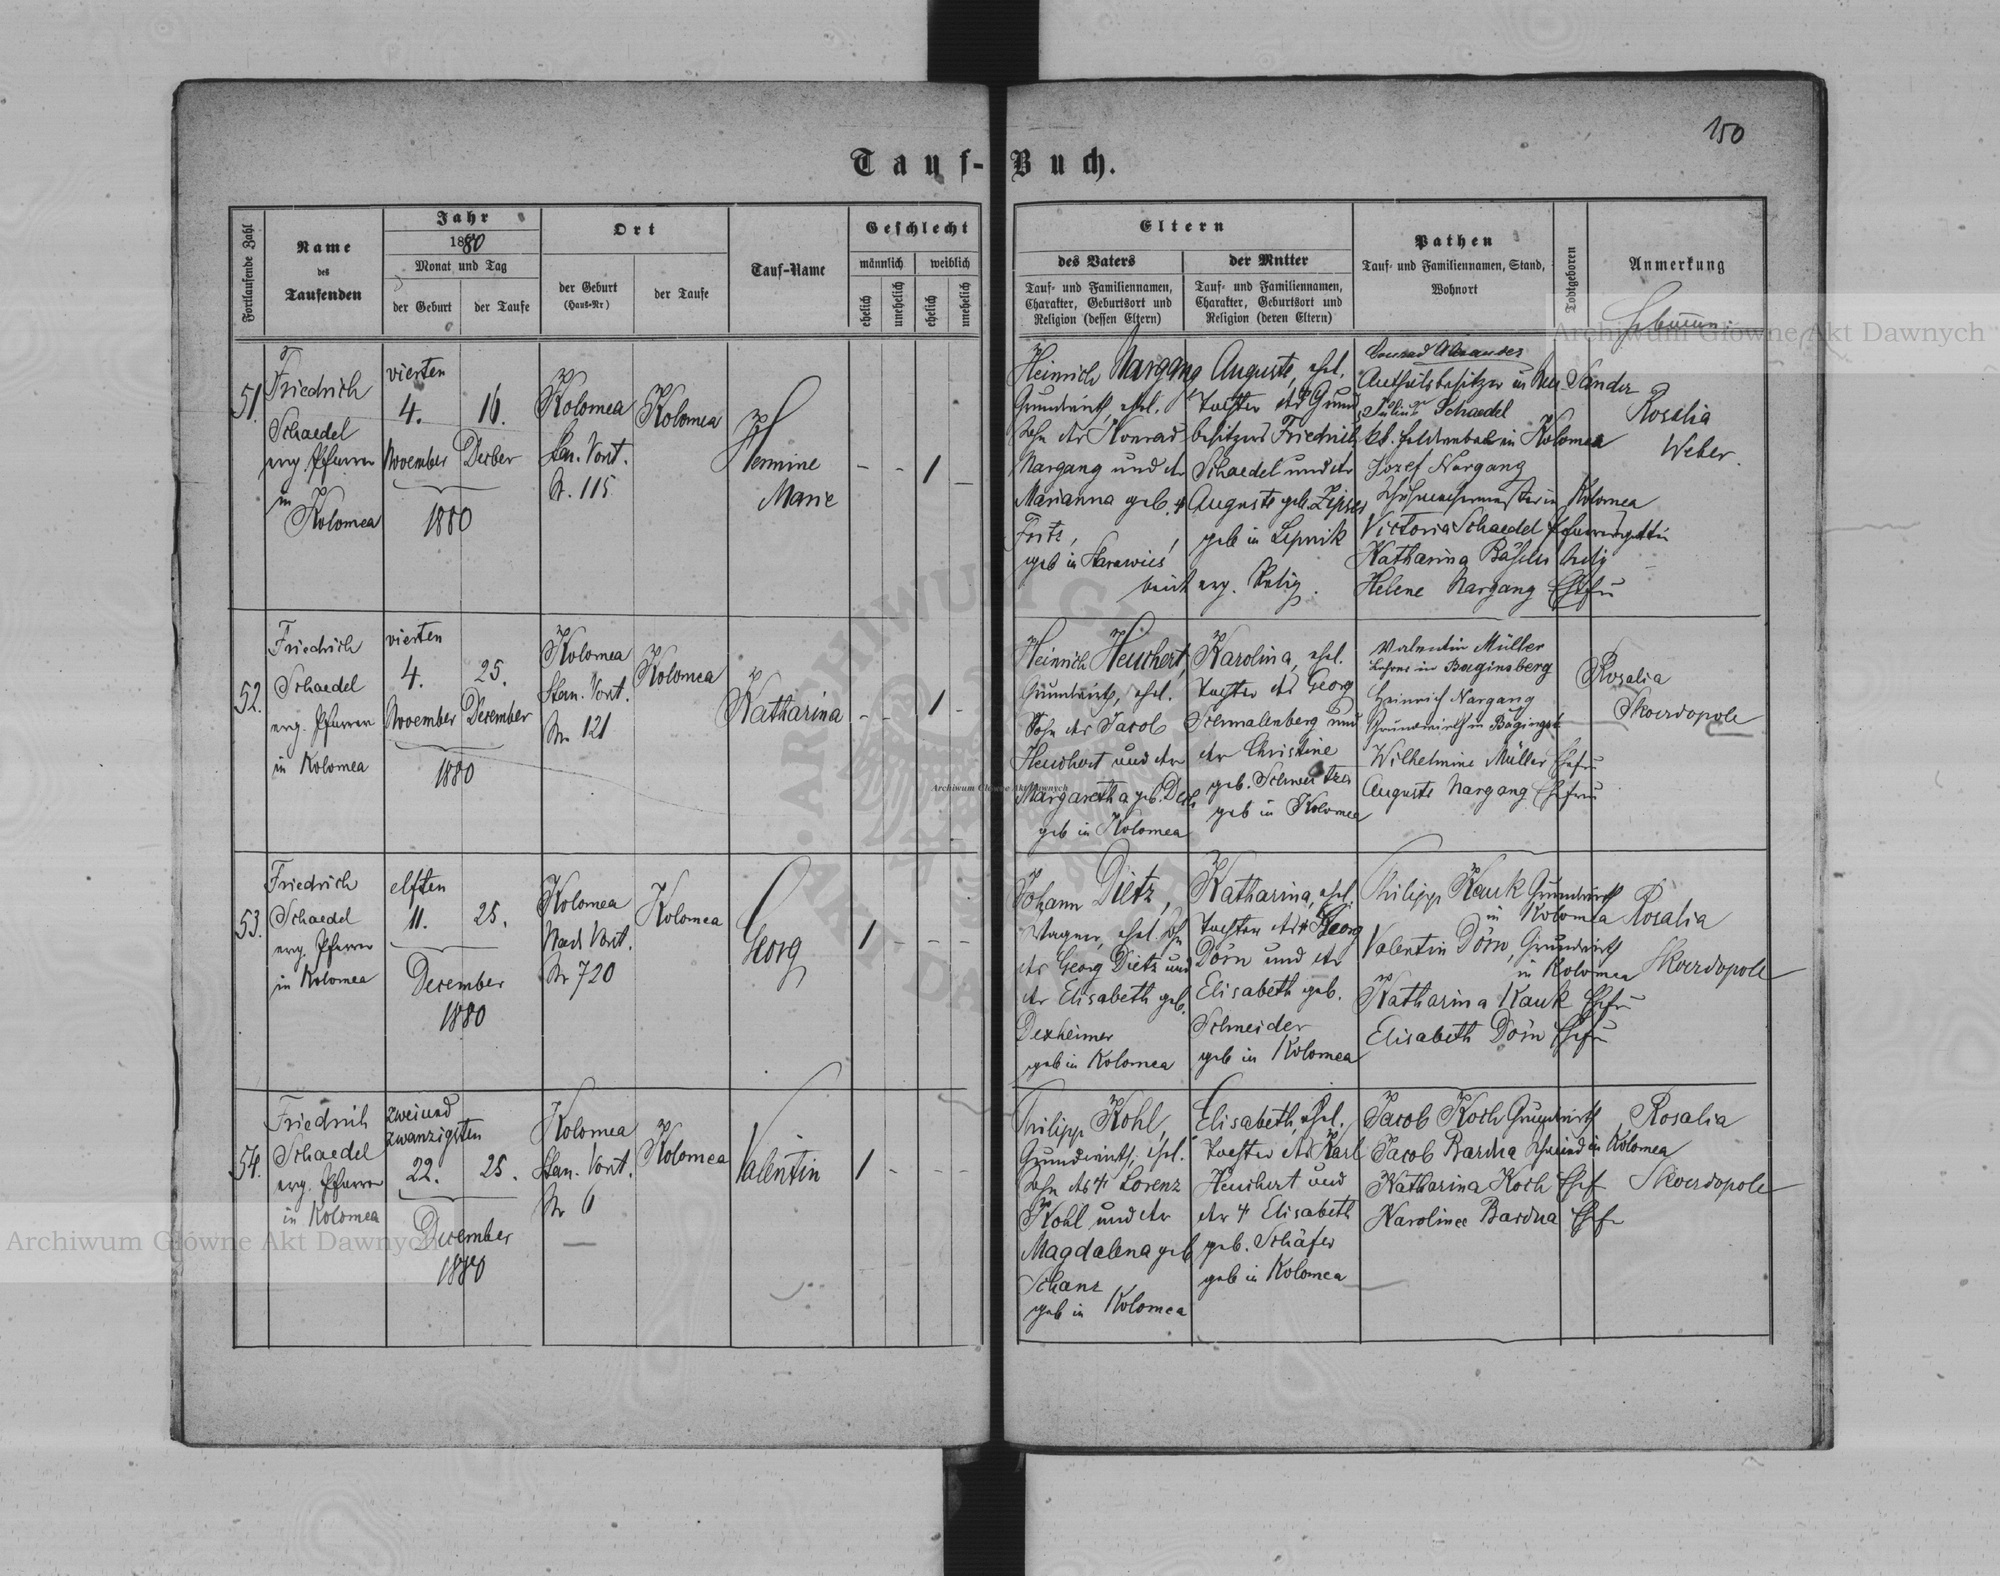 150
Tauf-Buch.
Fortlaufende Zahl
Name
des
Taufenden
Jahr
1880
Monat und Tag
der Geburt
der Taufe
Ort
der Geburt
(Haus-Nr)
der Taufe
Tauf-Name
Geschlecht
männlich
weiblich
ehelich
unehelich
ehelich
unehelich
Eltern
des Vaters
Tauf- und Familiennamen,
Charakter, Geburtsort und
Religion (dessen Eltern)
der Mutter
Tauf- und Familiennamen,
Charakter, Geburtsort und
Religion (deren Eltern)
Pathen
Tauf- und Familiennamen, Stand,
Wohnort
Todtgeboren
Anmerkung
51.
Friedrich
Schaedel
evg. Pfarrer
in
Kolomea
vierten
4.
November
16.
Decber
1880
Kolomea
Stan. Vorst.
N. 115
Kolomea
Hermine
Marie
- - 1 -
Heinrich Nargang
Grundwirth, ehel.
Sohn des Konrad
Nargang und der
Marianna geb.
geb in
Auguste, ehel.
Tochter des Grund
besitzers Friedrich
Schaedel und der
Auguste geb. Zipser
geb in Lipnik
evg. Relig.
Conrad Alexander
Antheilsbesitzer in Neu-Sandez
Julius Schaedel
in Kolomea
Jozef Nargang
in Kolomea
Victoria Schaedel Pfarrersgattin
Katharina
Helene Nargang Ehefr
Rosalia
Weber.
52.
Friedrich
Schaedel
evg. Pfarrer
in Kolomea
vierten
4.
November
25.
December
1880
Kolomea
Stan. Vorst.
Nr. 121
Kolomea
Katharina
- - 1 -
Heinrich Heuchert,
Grundwirth, ehel.
Sohn des Jacob
Heuchert und der
Margaretha geb.
geb in Kolomea
Karolina, ehel.
Tochter des Georg
Schmalenberg und
der Christine
geb. Schweitzer
geb in Kolomea
Valentin Müller
Lehrer in Baginsberg
Heinrich Nargang
Grundwirth in Baginsb
Wilhelmine Müller Ehefr
Auguste Nargang Ehefrau
Rosalia
Skoerdopole
53.
Friedrich
Schaedel
evg. Pfarrer
in Kolomea
elften
11.
25.
December
1880
Kolomea
Nad. Vorst.
Nr 720
Kolomea
Georg
1 - - -
Johann Dietz,
Wagner, ehel. Sohn
des Georg Dietz und
der Elisabeth geb.
Dexheimer
geb in Kolomea
Katharina, ehel.
Tochter des Georg
Dörn und der
Elisabeth geb.
Schneider
geb in Kolomea
Philipp Kauk Grundwirth
in Kolomea
Valentin Dörn, Grundwirth
in Kolomea
Katharina Kauk Ehefr
Elisabeth Dörn Ehefr
Rosalia
Skoerdopole
54.
Friedrich
Schaedel
evg. Pfarrer
in Kolomea
zweiund
zwanzigsten
22.
25.
December
1880
Kolomea
Stan. Vorst.
Nr 6
Kolomea
Valentin
1 - - -
Philipp Kohl,
Grundwirth, ehel.
Sohn des † Lorenz
Kohl und der
Magdalena geb
Schanz
geb in Kolomea
Elisabeth, ehel.
Tochter des Karl
Heuchert und
der † Elisabeth
geb. Schäfer
geb in Kolomea
Jacob Koch Grundwirth
Jacob Bardua Schmied in Kolomea
Katharina Koch Ehef
Karolinee Bardua Ehefr
Rosalia
Skoerdopole
Archiwum Główne Akt Dawnych
Archiwum Główne Akt Dawnych
Archiwum Główne Akt Dawnych